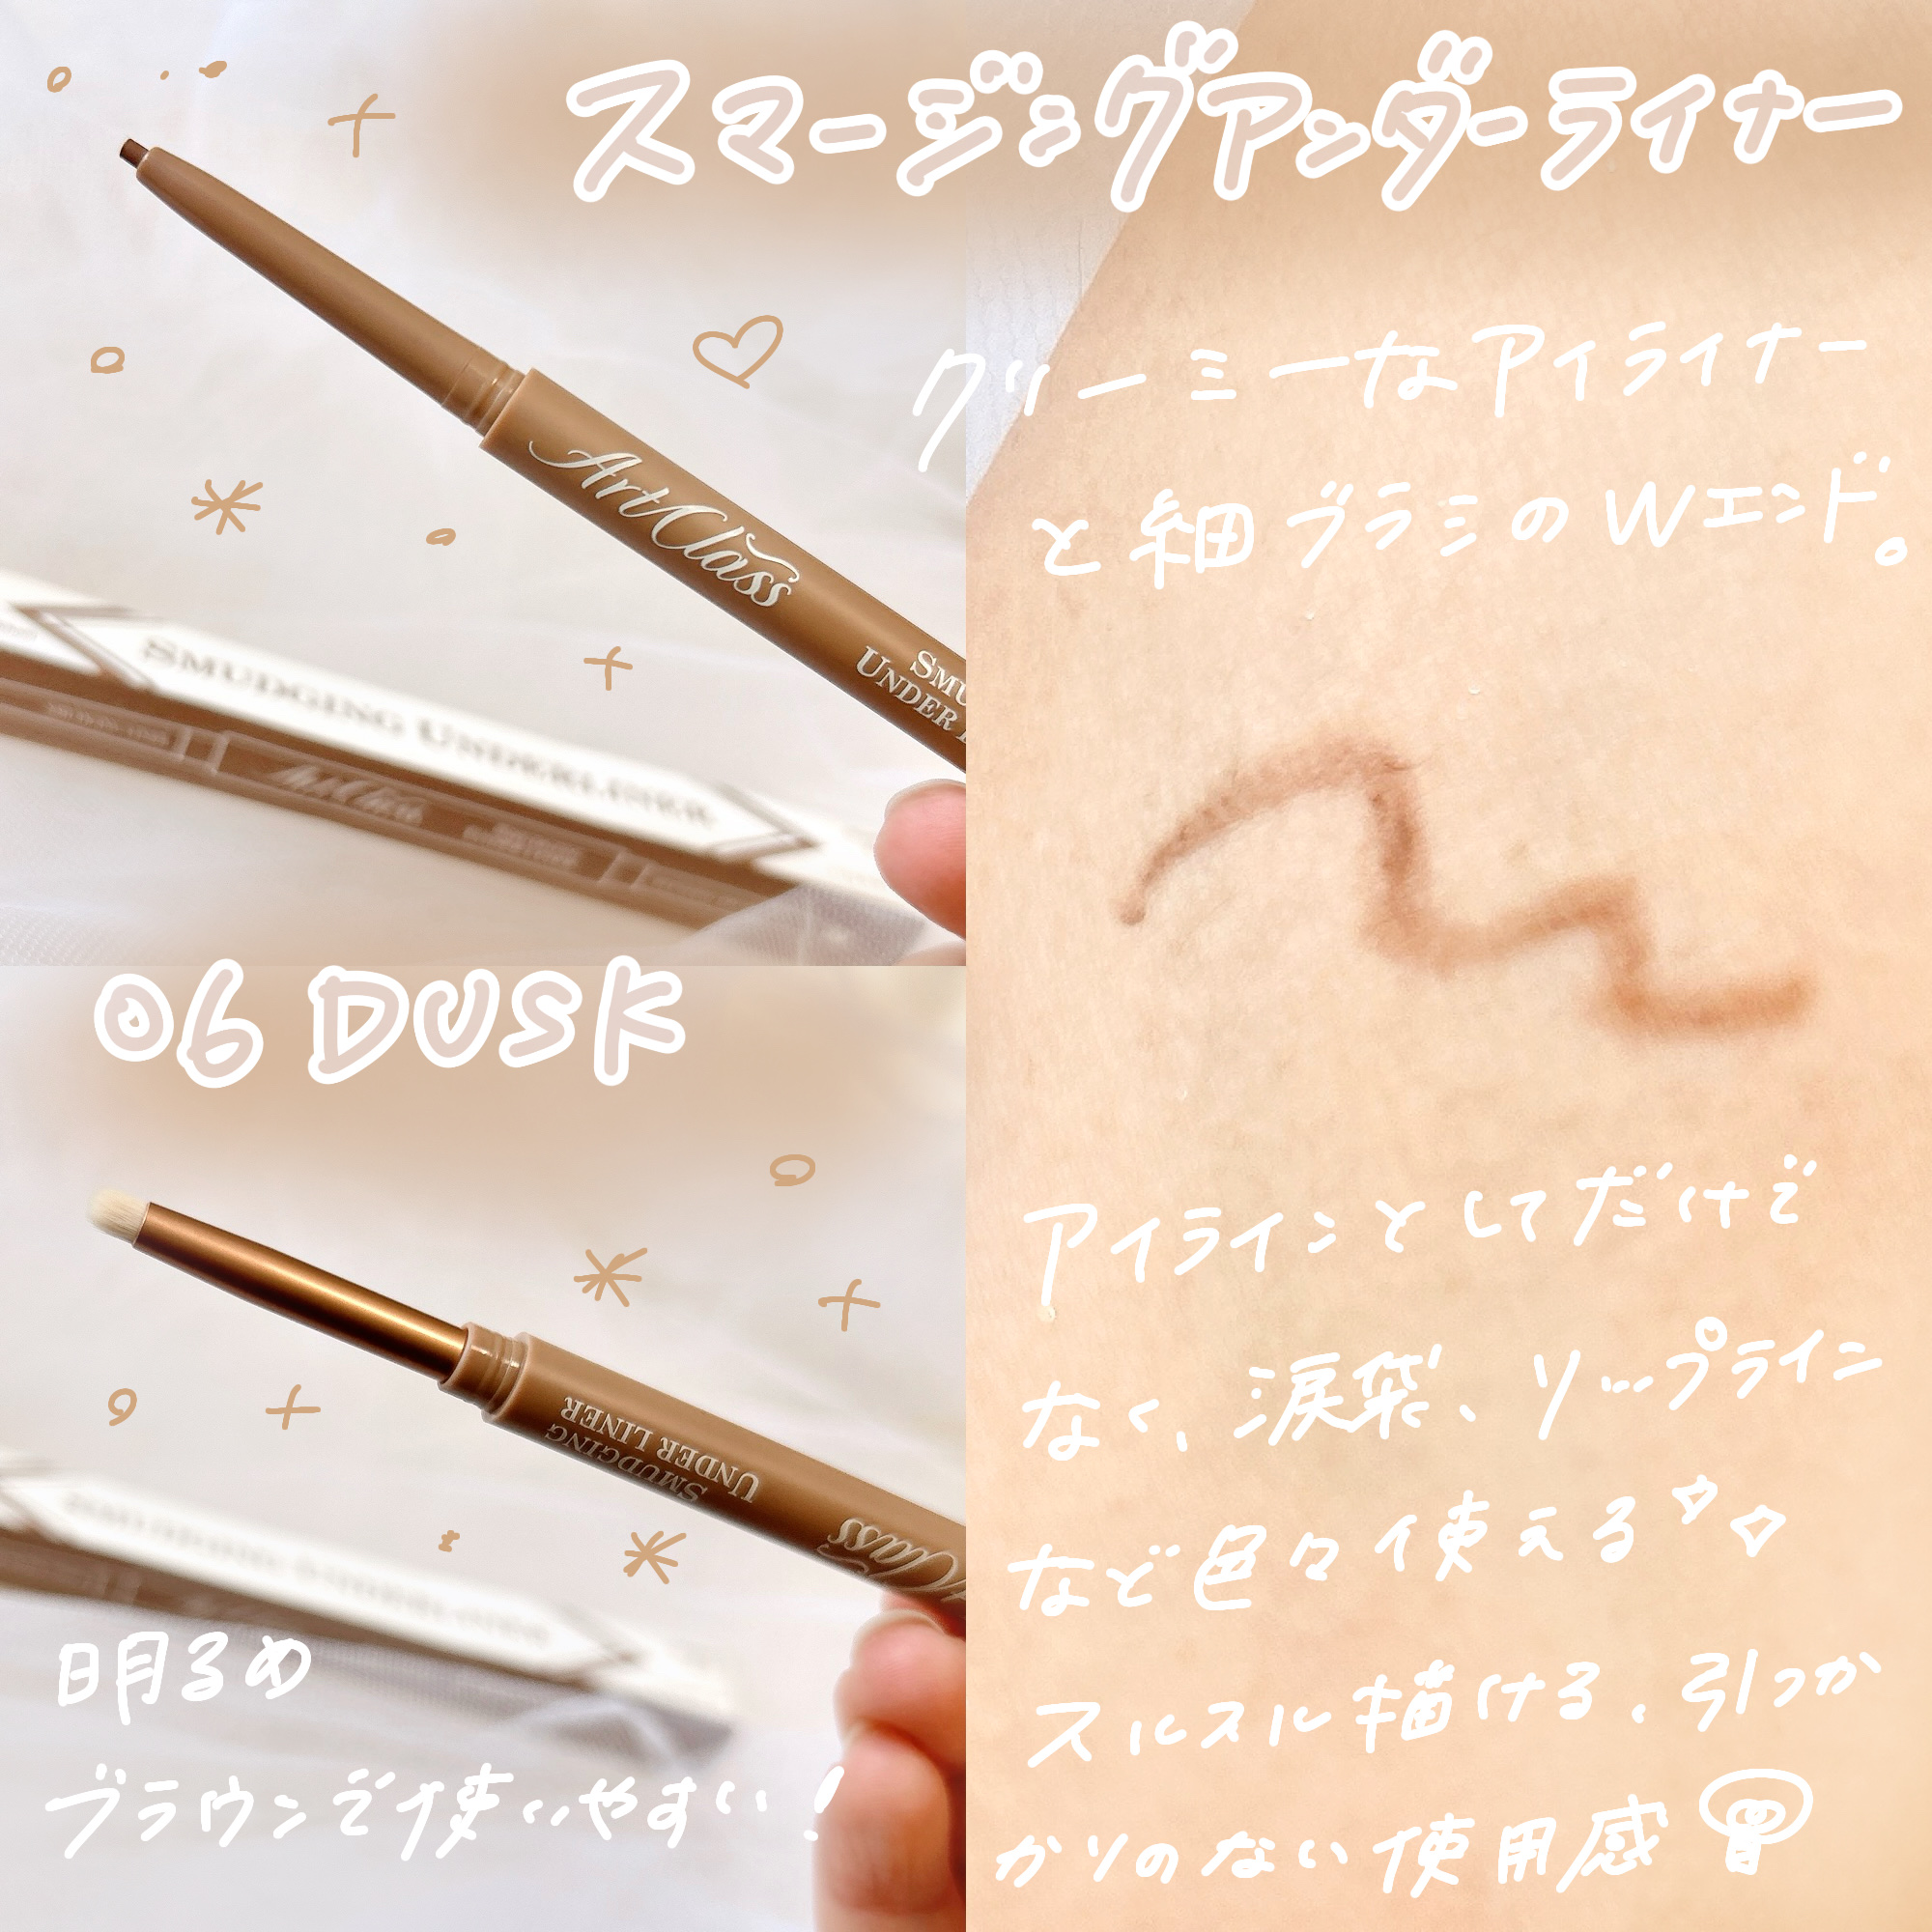 スマージングアンダーライナー
クリーミーなアイライナー
と細ブラシのWエンド。
ArtClass
UNDER
SMUDGING UNDERLINER
ArtClass
06 DUSK
アイラインとしてだけで
なく、涙袋、リップライン
など色々使える
スルスル描ける、引っか
かりのない使用感
SMUDGING
UNDER LINER
Class
明るめ
ブラウンで使いやすい!